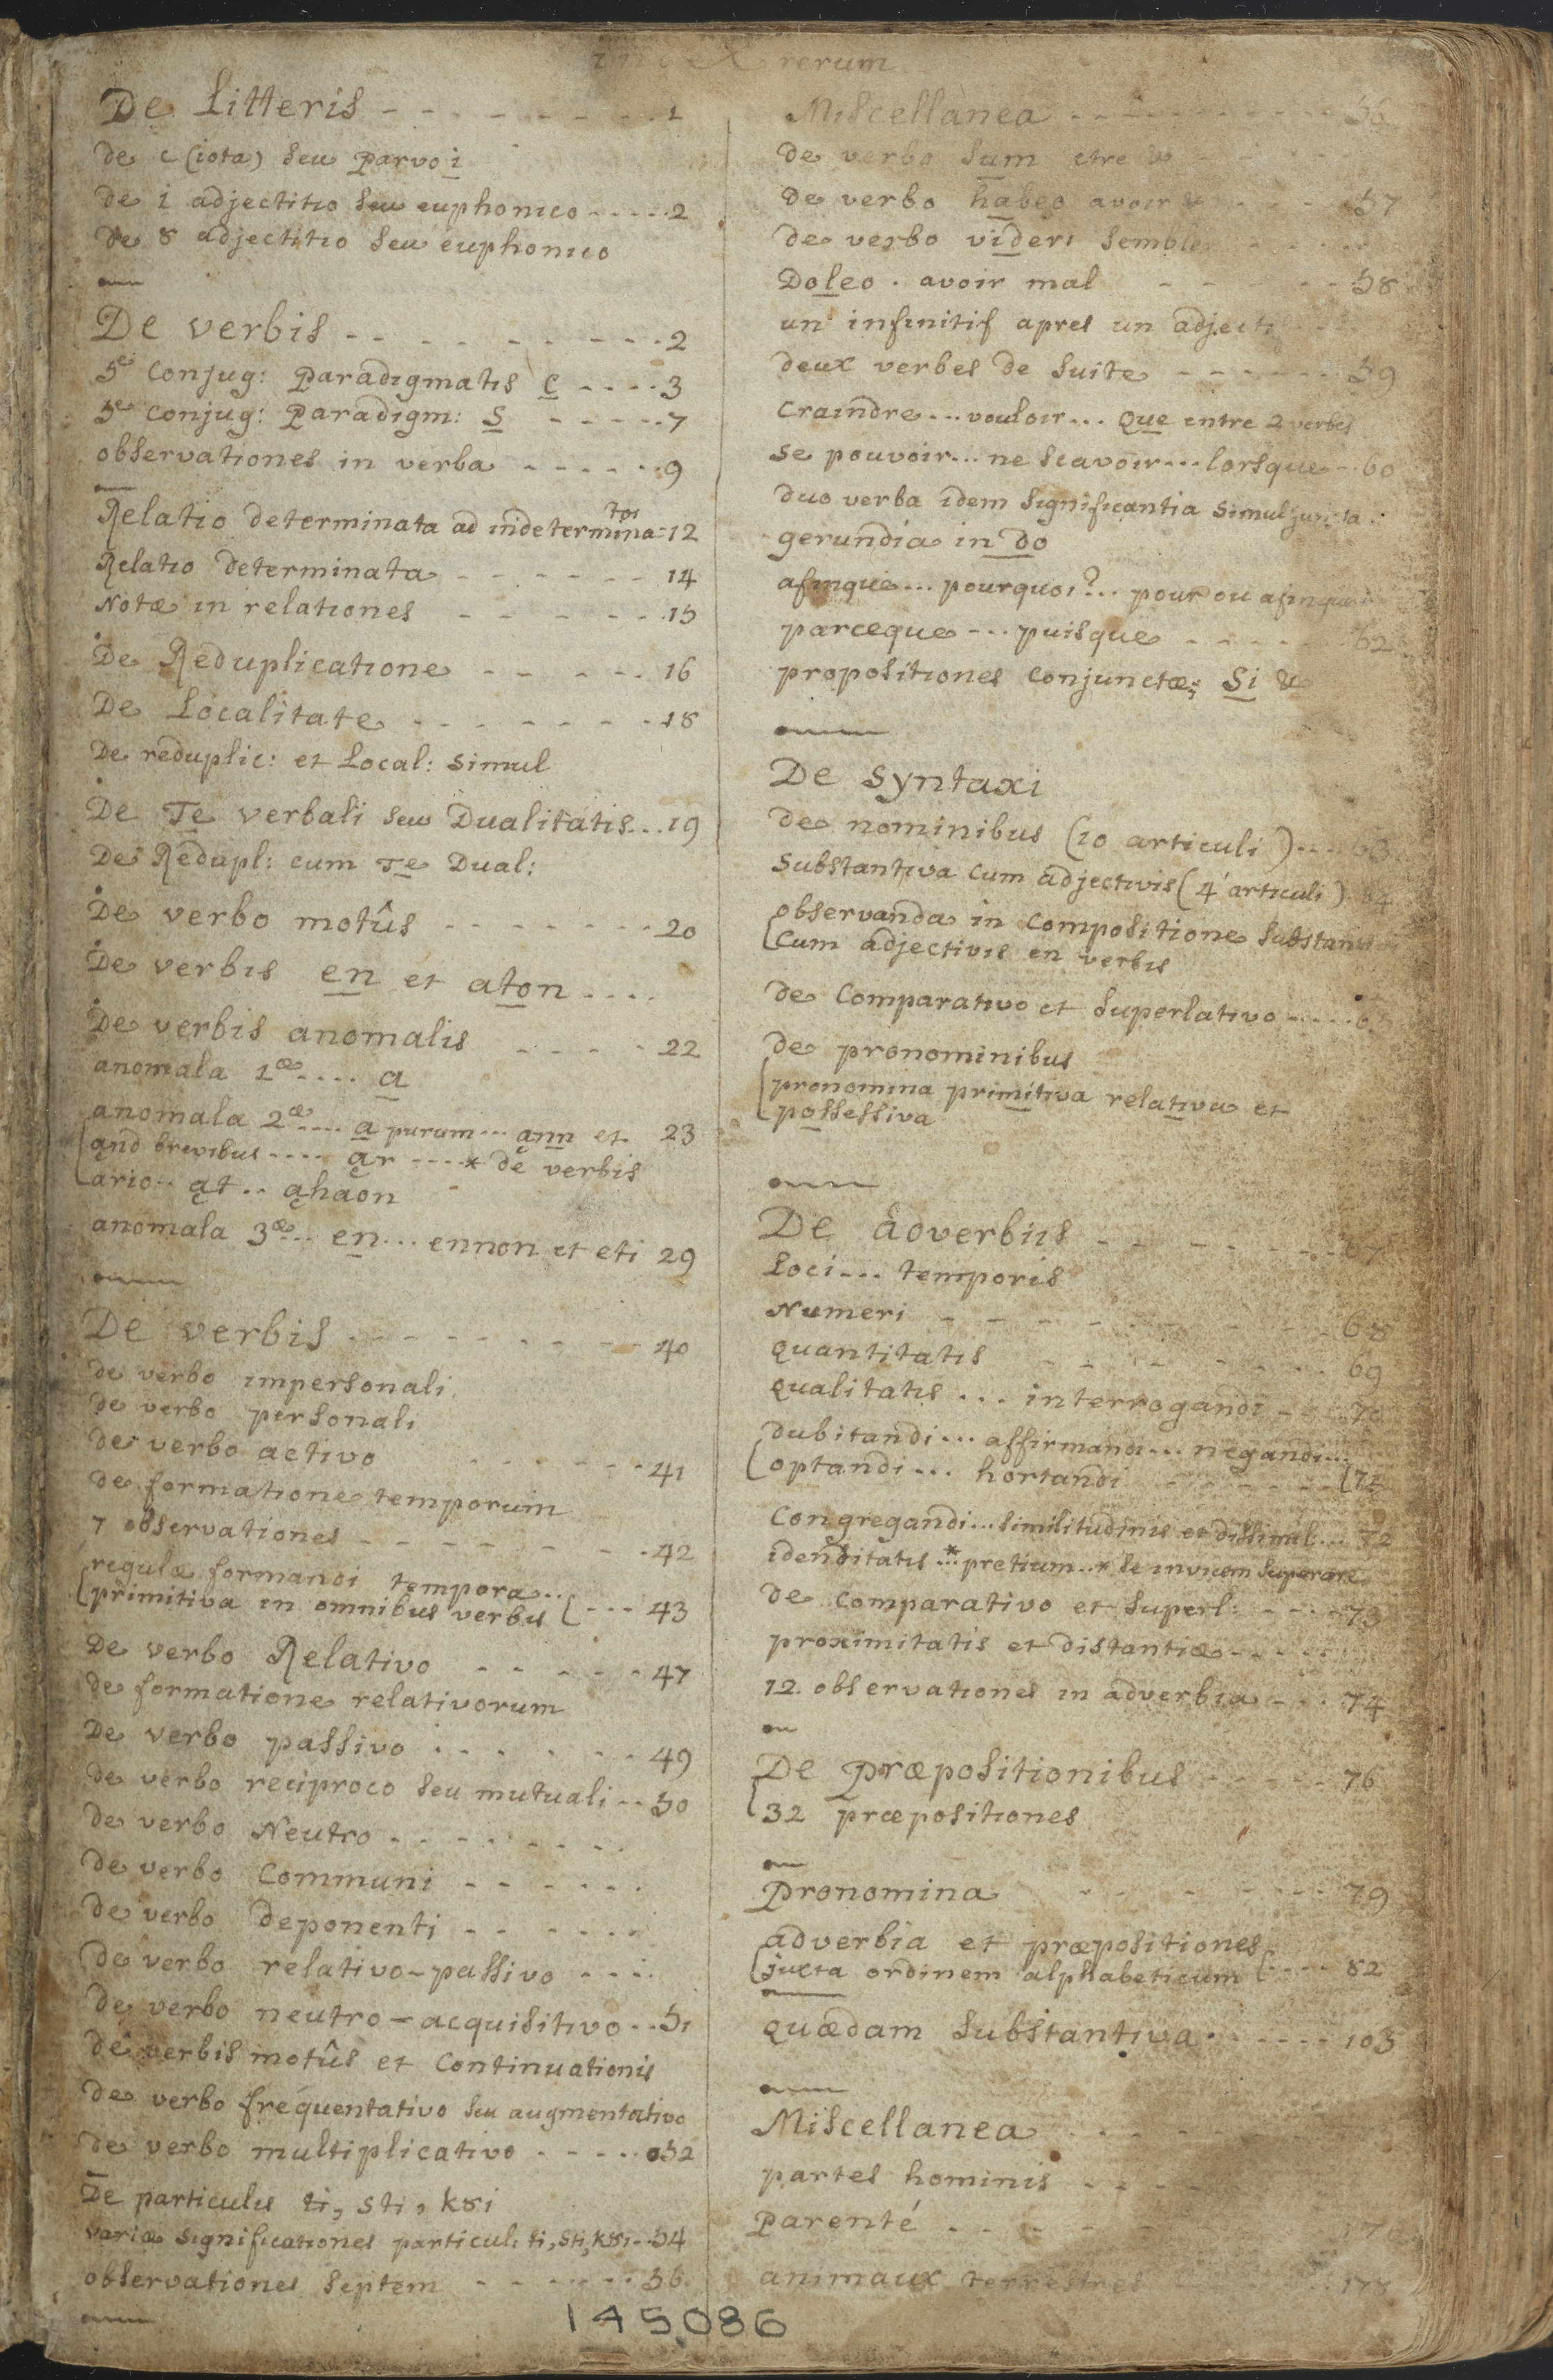 index rerum
De Litteris - - - - - - - - 1
de ι (iota) seu parvo i
de i adjectitio seu euphonico - - - - - 2
de 8 adjectitio seu euphonico
De verbis - - - - - - - - - 2
5æ Conjug: paradigmatis C - - - - 3
5æ Conjug: Paradigm: S - - - - - 7
observationes in verba - - - - - - 9
Relatio determinata ad indetermina=tos 12
Relatio determinata - - - - - - 14
Notæ in relationes - - - - - - 15
De Reduplicatione - - - - - 16
De Localitate - - - - - - - - 18
De reduplic: et Local: simul
De Te verbali seu Dualitatis... 19
De Redupl: cum Te Dual:
De verbo motûs - - - - - - - 20
De verbis en et aton . . . .
De verbis anomalis - - - - 22
anomala 1æ.... a
anomala 2æ.... a purum... ann et 23
and brevibus.... ar ....* de verbis
ario.. at.. ahaon
anomala 3æ... en... ennon et eti 29
De verbis - - - - - - - - 40
de verbo impersonali
de verbo personali
de verbo activo - - - - - - 41
de formatione temporum
7 observationes - - - - - - - - 42
regulæ formandi tempora...
primitiva in omnibus verbis - - - 43
De verbo Relativo - - - - - 47
de formatione relativorum
De verbo passivo . . . . . . . 49
de verbo reciproco seu mutuali... 50
de verbo Neutro - - - - - - - -
de verbo Communi - - - - - -
de verbo deponenti - - - - - -
de verbo relativo-passivo - - - -
de verbo neutro-acquisitivo... 51
de verbis motûs et Continuationis
de verbo frequentativo seu augmentativo
de verbo multiplicativo - - - - - 52
De particulis ti, sti, k8i
variæ significationes particul: ti, sti, k8i... 54
observationes septem - - - - - - 56.
Miscellanea - - - - - - - - - - 56
de verbo sum etre &
de verbo habeo avoir & - - - - 57
de verbo videri sembler - - - -
Doleo . avoir mal - - - - - - 58
un infinitif apres un adjectif
deux verbes de suite - - - - - - 59
Craindre... vouloir... que entre 2 verbes
se pouvoir... ne scavoir... lorsque... 60
duo verba idem significantia simul juncta
gerundia in do
afinque... pourquoi?... pour ou afinque
parceque... puisque - - - - - - 62
propositiones conjunctæ; Si &
De Syntaxi
de nominibus (10 articuli) - - - - 63
substantiva cum adjectivis (4 articuli) 64
observanda in Compositione substantivi
Cum adjectivis en verbis
de Comparativo et superlativo - - - - - 65
de pronominibus
pronomina primitiva relativa et
possessiva
De Adverbiis - - - - - - - - 67
Loci... temporis
Numeri - - - - - - - - - 68
quantitatis - - - - - - - - 69
qualitatis... interrogandi - - - 70
dubitandi... affirmandi... negandi...
optandi... hortandi - - - - - - 71
Congregandi... similitudinis et dissimil... 72
identitatis *... pretium... * se invicem superare
de Comparativo et superl: - - - - 73
proximitatis et distantiæ - - - - -
12. observationes in adverbia - - - 74
De Præpositionibus - - - - - 76
32 præpositiones
Pronomina - - - - - - - 79
adverbia et præpositiones
juxta ordinem alphabeticum - - - - 82
quædam substantiva - - - - - - 105
Miscellanea - - - - - -
partes hominis - - - - -
Parenté - - - - - -
animaux terrestres
145086